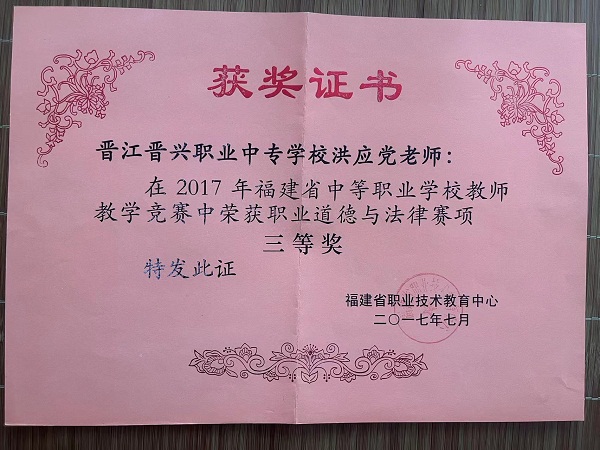 获奖证书
晋江晋兴职业中专学校洪应党老师：
在 2017 年福建省中等职业学校教师
教学竞赛中荣获职业道德与法律赛项
三等奖
特发此证
福建省职业技术教育中心
二〇一七年七月